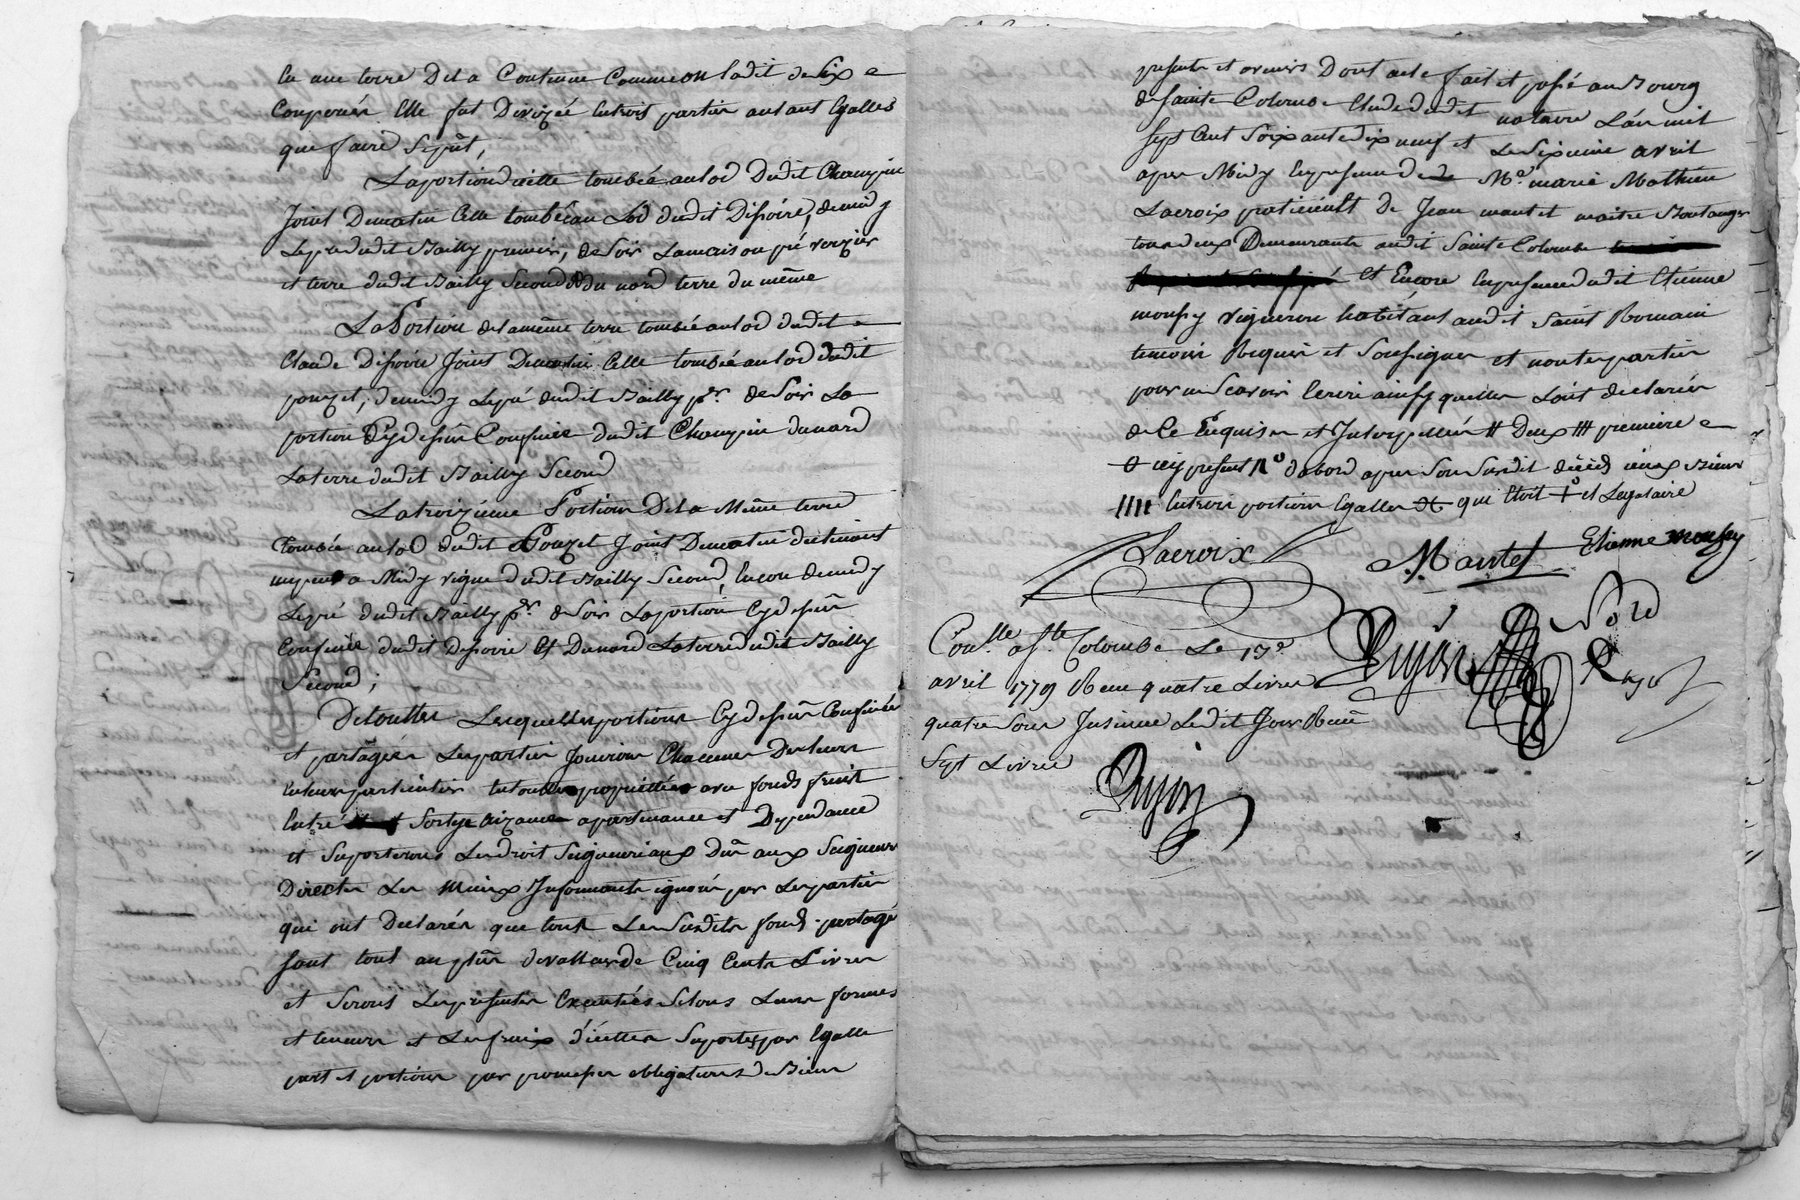 en une terre De la Contenue Comme on la dit de Six
Couperées Elle fut Divizée en trois parties autant Egalles
que faire Se put,
La portion d'icelle tombée au lod Dudit Champin
Joint De matin Celle tombée au Lod dudit Dissoire, de midy
Le pré dudit Bailly premier, de Soir La maison pré verzier
et terre dudit Bailly Second & du nord terre du même
La Portion de la même terre tombée au lod dudit
Claude Dissoire Joint De matin Celle tombée au lod dudit
pouzet, de midy Le pré dudit Bailly pr. de Soir La
portion Cydessus Confinée dudit Champin du nord
La terre dudit Bailly Second
La troizième Portion De la Même terre
tombée au lod dudit Pouzet Joint De matin
un peu a Midy vigne dudit Bailly Second, Encore de midy
Le pré dudit Bailly pr. de Soir La portion Cydessus
Confinée dudit Dissoire Et Du nord La terre dudit Bailly
Second ;
De touttes Lesquelles portions Cydessus Confinées
et partagées Les parties Jouiront Chacunes Des leurs
en leurs particulier en toutes propriettés avec fonds fruit
Entré Sortye aizance apartenance et Dependance
et Suporterons Les droit Seigneuriaux Dûs aux Seigneurs
Directes Les Mieux Informants ignorés par Les parties
qui ont Declarés que tous Les Susdits fonds partagé
sont tout au plus de valleur de Cinq Cents Livres
et Seront Les presentes Executées Selons Leurs formes
et teneurs et Les fraix d'icelles Suportés par Egalle
part et portions par promesses obligations de Biens
presents et avenirs Dont acte fait et passé au Bourg
de Sainte Colombe Etude dudit notaire L'an mil
Sept Cent Soixante dix neuf et Le Sixieme avril
apres Midy En presence de Me. marie Mathieu
Lacroix praticient & de Jean mantet maitre Boulanger
tous deux Demeurants audit Sainte Colombe
Et Encore En presence dudit Etienne
moussy vigneron habitant audit Saint Romain
temoins Requis et Soussignes et non les parties
pour ne Scavoir Ecrire ainsy quelles L'ont declarées
de Ce Enquises et Interpellées # Deux ### premiere
icy present d'abord apres Son Susdit décéds
IIII En trois portions Egalles qui Etoit et Legataire
Lacroix
Mantet
Etienne moussy
Dujon
Nord
Rage
Conlle. a Ste. Colombe Le 17e
avril 1779 Recu quatre Livres
quatre Sous Jnsinue Ledit Jour Recu
Sept Livres
Dujon